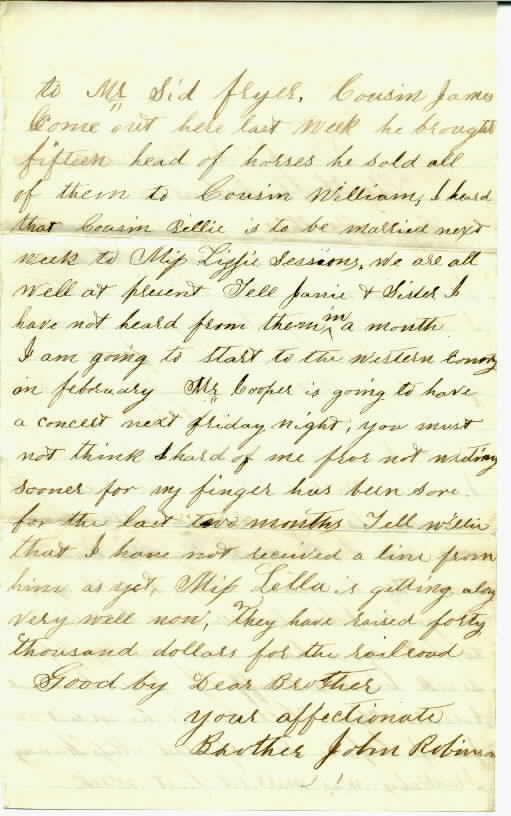 to Mr Sid fryer, Cousin James
Come out here last week he brought
fifteen head of horses he sold all
of them to Cousin William, I heard
that Cousin is to be married next
week to Miss Lizzie Sessions, we are all
well at present Tell Janie & Sister I
have not heard from them in a month
I am going to start to the western
in february Mr Cooper is going to have
a concert next friday night, you must
not think hard of me for not
sooner for my finger has been sore
for the last two months Tell Willie
that I have not received a line from
him as yet, Miss Lella is getting along
very well now, They have raised forty
thousand dollars for the railroad
Good by Dear Brother
your affectionate
Brother John Robinson